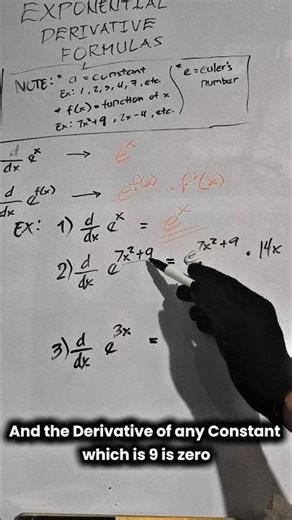 EXPONENTIAL
DERIVATIVE
FORMULAS
NOTE: * a = constant
Ex: 1, 2, 3, 4, 7, etc.
* f(x) = function of x
Ex: 7x²+9, 2x-4, etc.
* e = Euler's
number
d/dx e^x → e^x
d/dx e^f(x) → e^f(x) · f'(x)
Ex: 1) d/dx e^x = e^x
2) d/dx e^7x²+9 = e^7x²+9 · 14x
3) d/dx e^3x =
And the Derivative of any Constant
which is 9 is zero